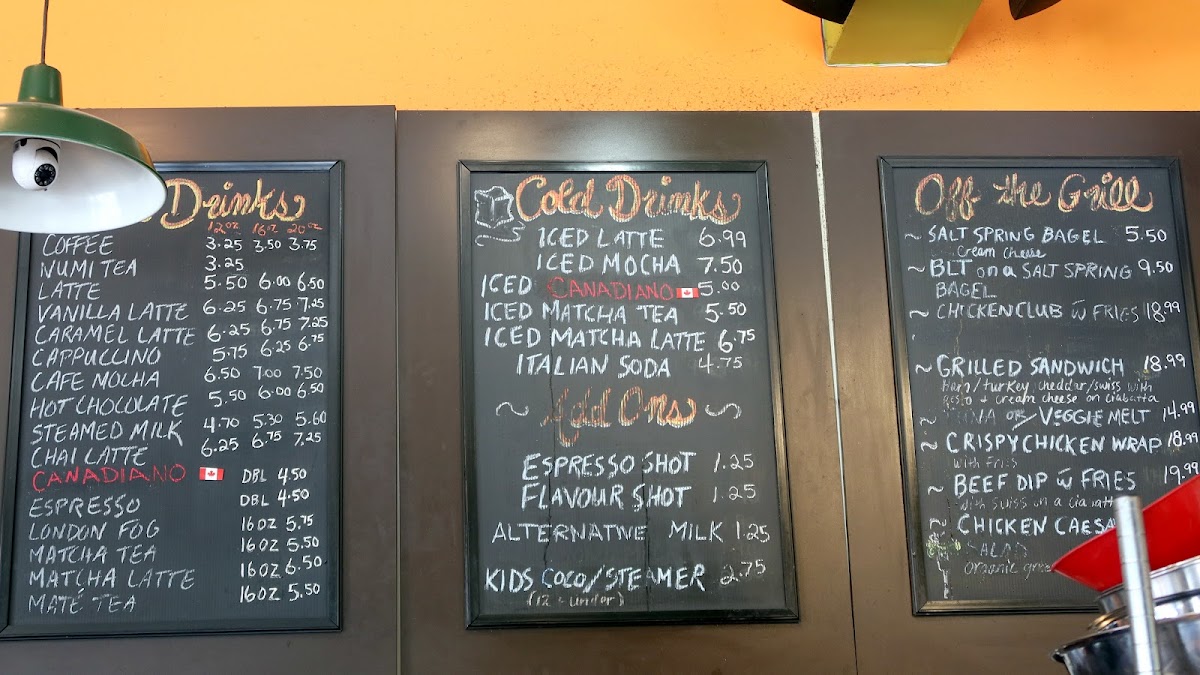 Drinks
12oz 16oz 20oz
COFFEE 3.25 3.50 3.75
NUMI TEA 3.25
LATTE 5.50 6.00 6.50
VANILLA LATTE 6.25 6.75 7.25
CARAMEL LATTE 6.25 6.75 7.25
CAPPUCCINO 5.75 6.25 6.75
CAFE MOCHA 6.50 7.00 7.50
HOT CHOCOLATE 5.50 6.00 6.50
STEAMED MILK 4.70 5.30 5.60
CHAI LATTE 6.25 6.75 7.25
CANADIANO DBL 4.50
ESPRESSO DBL 4.50
LONDON FOG 16OZ 5.75
MATCHA TEA 16OZ 5.50
MATCHA LATTE 16OZ 6.50
MATÉ TEA 16OZ 5.50
Cold Drinks
ICED LATTE 6.99
ICED MOCHA 7.50
ICED CANADIANO 5.00
ICED MATCHA TEA 5.50
ICED MATCHA LATTE 6.75
ITALIAN SODA 4.75
~ Add Ons ~
ESPRESSO SHOT 1.25
FLAVOUR SHOT 1.25
ALTERNATIVE MILK 1.25
KIDS COCO/STEAMER 2.75
(12 & under)
Off the Grill
~ SALT SPRING BAGEL 5.50
Cream cheese
~ BLT on a SALT SPRING 9.50
BAGEL
~ CHICKEN CLUB w̄ FRIES 18.99
~ GRILLED SANDWICH 18.99
Ham/turkey, cheddar/swiss with
pesto & cream cheese on ciabatta
~ TUNA OR/VEGGIE MELT 14.99
~ CRISPY CHICKEN WRAP 18.99
with fries
~ BEEF DIP w̄ FRIES 19.99
with swiss on a ciabatta
~ CHICKEN CAESA
SALAD
organic gree